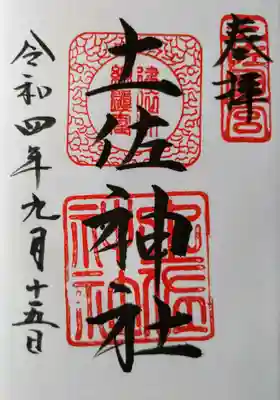 奉拝
土佐神社
令和四年九月十五日